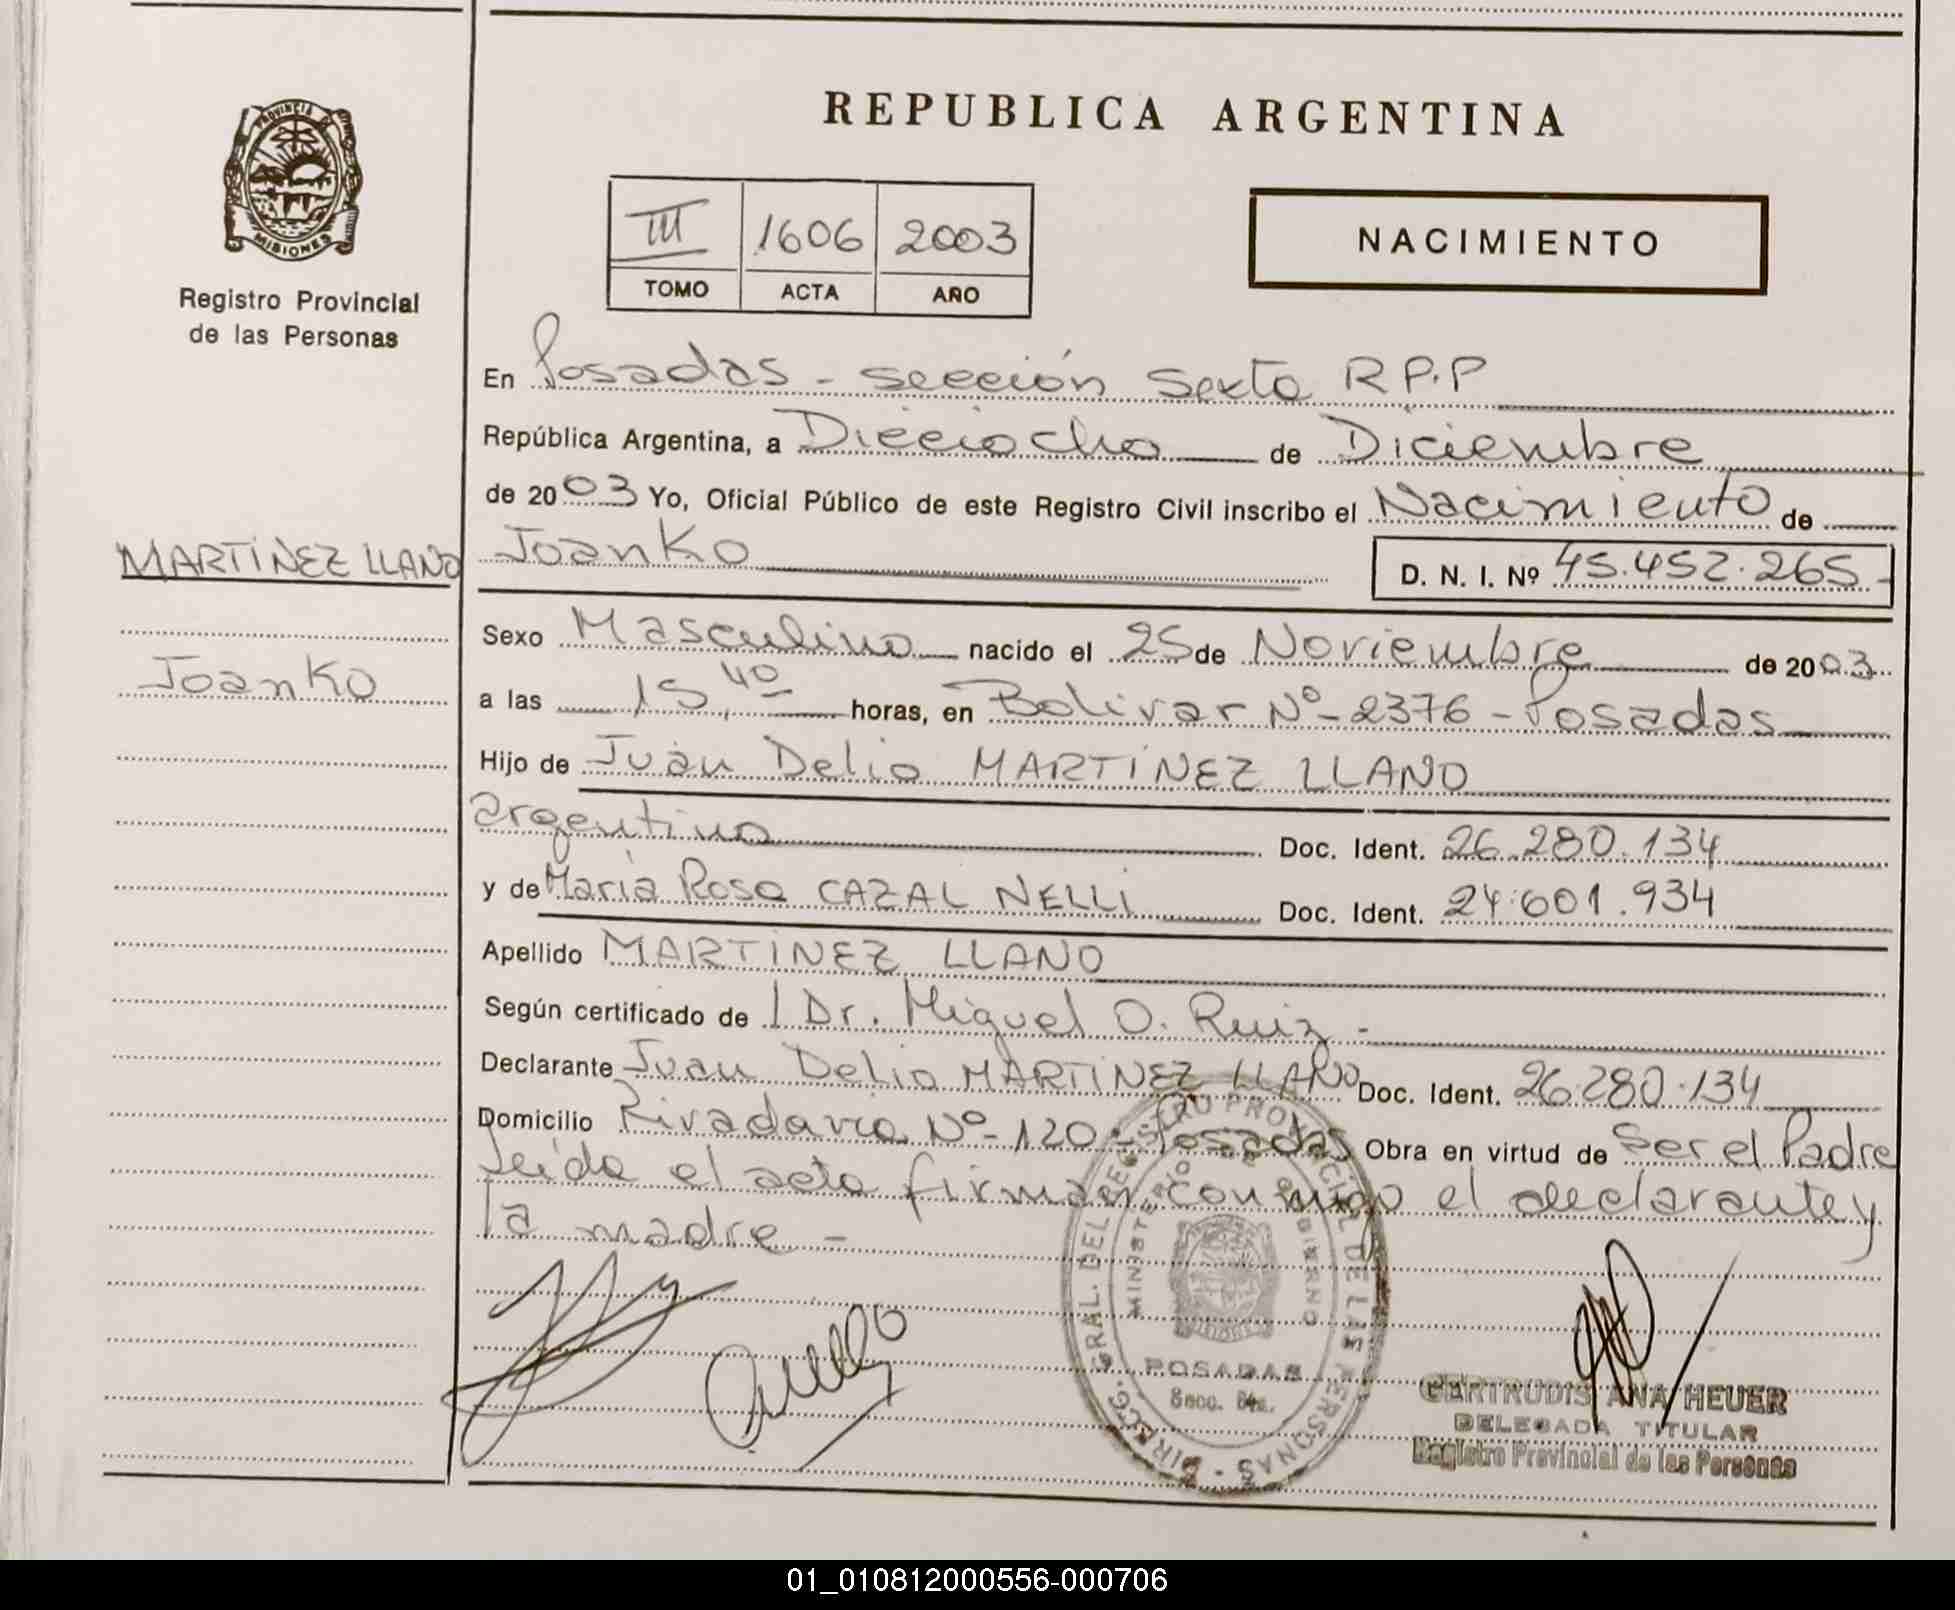 REPUBLICA ARGENTINA
PROVINCIA DE
MISIONES
Registro Provincial
de las Personas
III 1606 2003
TOMO ACTA AÑO
NACIMIENTO
En Posadas - sección Sexta R P.P
República Argentina, a Dieciocho de Diciembre
de 2003 Yo, Oficial Público de este Registro Civil inscribo el Nacimiento de
MARTÍNEZ LLANO
Joanko
Joanko D. N. I. Nº 45.452.265.-
Sexo Masculino nacido el 25 de Noviembre de 2003
a las 15,40 horas, en Bolivar Nº- 2376 - Posadas
Hijo de Juan Delio MARTÍNEZ LLANO
argentino Doc. Ident. 26.280.134
y de María Rosa CAZAL NELLI Doc. Ident. 24.601.934
Apellido MARTÍNEZ LLANO
Según certificado de l Dr. Miguel O. Ruiz -
Declarante Juan Delio MARTÍNEZ LLANO Doc. Ident. 26.280.134
Domicilio Rivadavia Nº- 120 - Posadas Obra en virtud de Ser el Padre
Leída el acta firman conmigo el declarante y
la madre -
DIRECC. GRAL. DEL REGISTRO PROVINCIAL DE LAS PERSONAS -
MINISTERIO DE GOBIERNO
POSADAS
Secc. 6ta.
GERTRUDIS ANA HEUER
DELEGADA TITULAR
Registro Provincial de las Personas
01_010812000556-000706